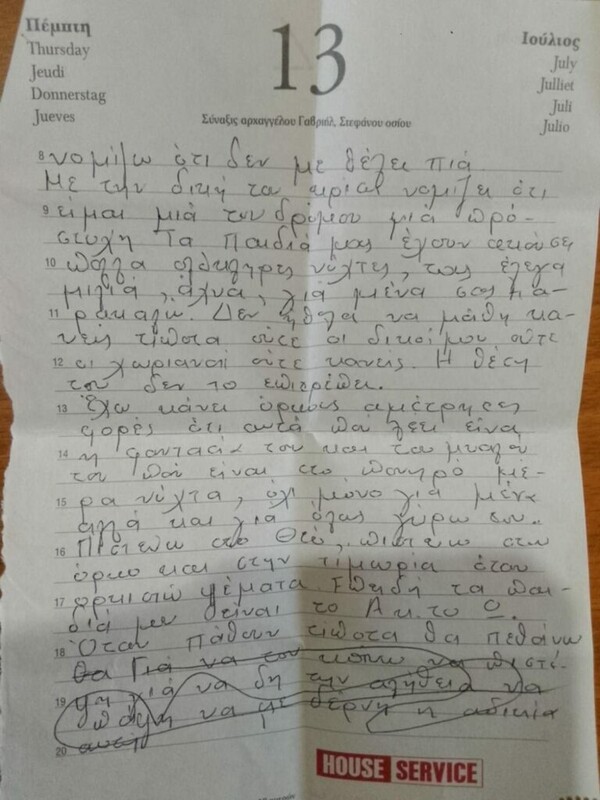 Πέμπτη
Thursday
Jeudi
Donnerstag
Jueves
13
Ιούλιος
July
Julliet
Juli
Julio
Σύναξις αρχαγγέλου Γαβριήλ, Στεφάνου οσίου
8 νομίζω ότι δεν με θέλει πιά
Με την δική του νομίζει ότι
9 είμαι μιά του δρόμου μιά πρό-
στυχη Τα Παιδιά μας έχουν ακούσει
10 πολλά ολόκληρες νύχτες, τους έλεγα
μιλιά, άχνα, γιά μένα σας πα-
11 ρακαλώ. Δεν ήθελα να μάθη κα-
νείς τίποτα ούτε οι δικοί μου ούτε
12 οι χωριανοί ούτε κανείς. Η θέση
του δεν το επιτρέπει.
13 Έχω κάνει όρκους αμέτρητες
φορές ότι αυτά που λέει είναι
14 η φαντασία του και του μυαλού
του που είναι στο πονηρό μέ-
15 ρα νύχτα, όχι μόνο γιά μένα
αλλά και για όλους γύρω του..
16 Πιστεύω στο Θεό, πιστεύω στον
όρκο και στην τιμωρία όταν
17 ορκιστώ ψέματα. Επειδή τα παι-
διά μου είναι το Α κ. το Ω.
18 Όταν πάθουν τίποτα θα πεθάνω
θα Γιά να τον κάνω να πιστέ-
19 ψη γιά να δη την αλήθεια να
πάψη να με δέρνη η αδικία
20
HOUSE SERVICE